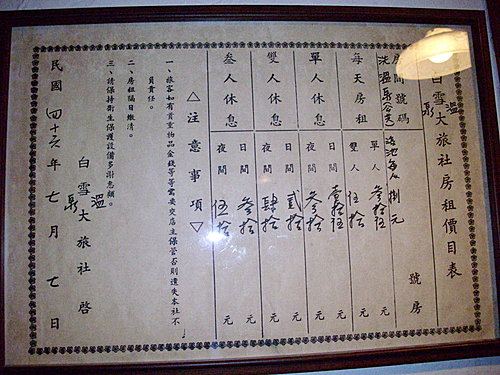 白雪溫泉大旅社房租價目表
房間號碼 號房
洗溫泉公共浴池每人捌元
每天房租 單人 叁拾伍元
雙人 伍拾元
單人休息 日間 壹拾伍元
夜間 叁拾元
雙人休息 日間 貳拾元
夜間 肆拾元
叁人休息 日間 叁拾元
夜間 伍拾元
△注意事項▽
一、旅客如有貴重物品金錢等等需要交店主保管否則遺失本社不
負責任。
二、房租隔日繳清。
三、請保持衛生保護設備多謝惠顧。
白雪溫泉大旅社啓
民國四十六年七月七日